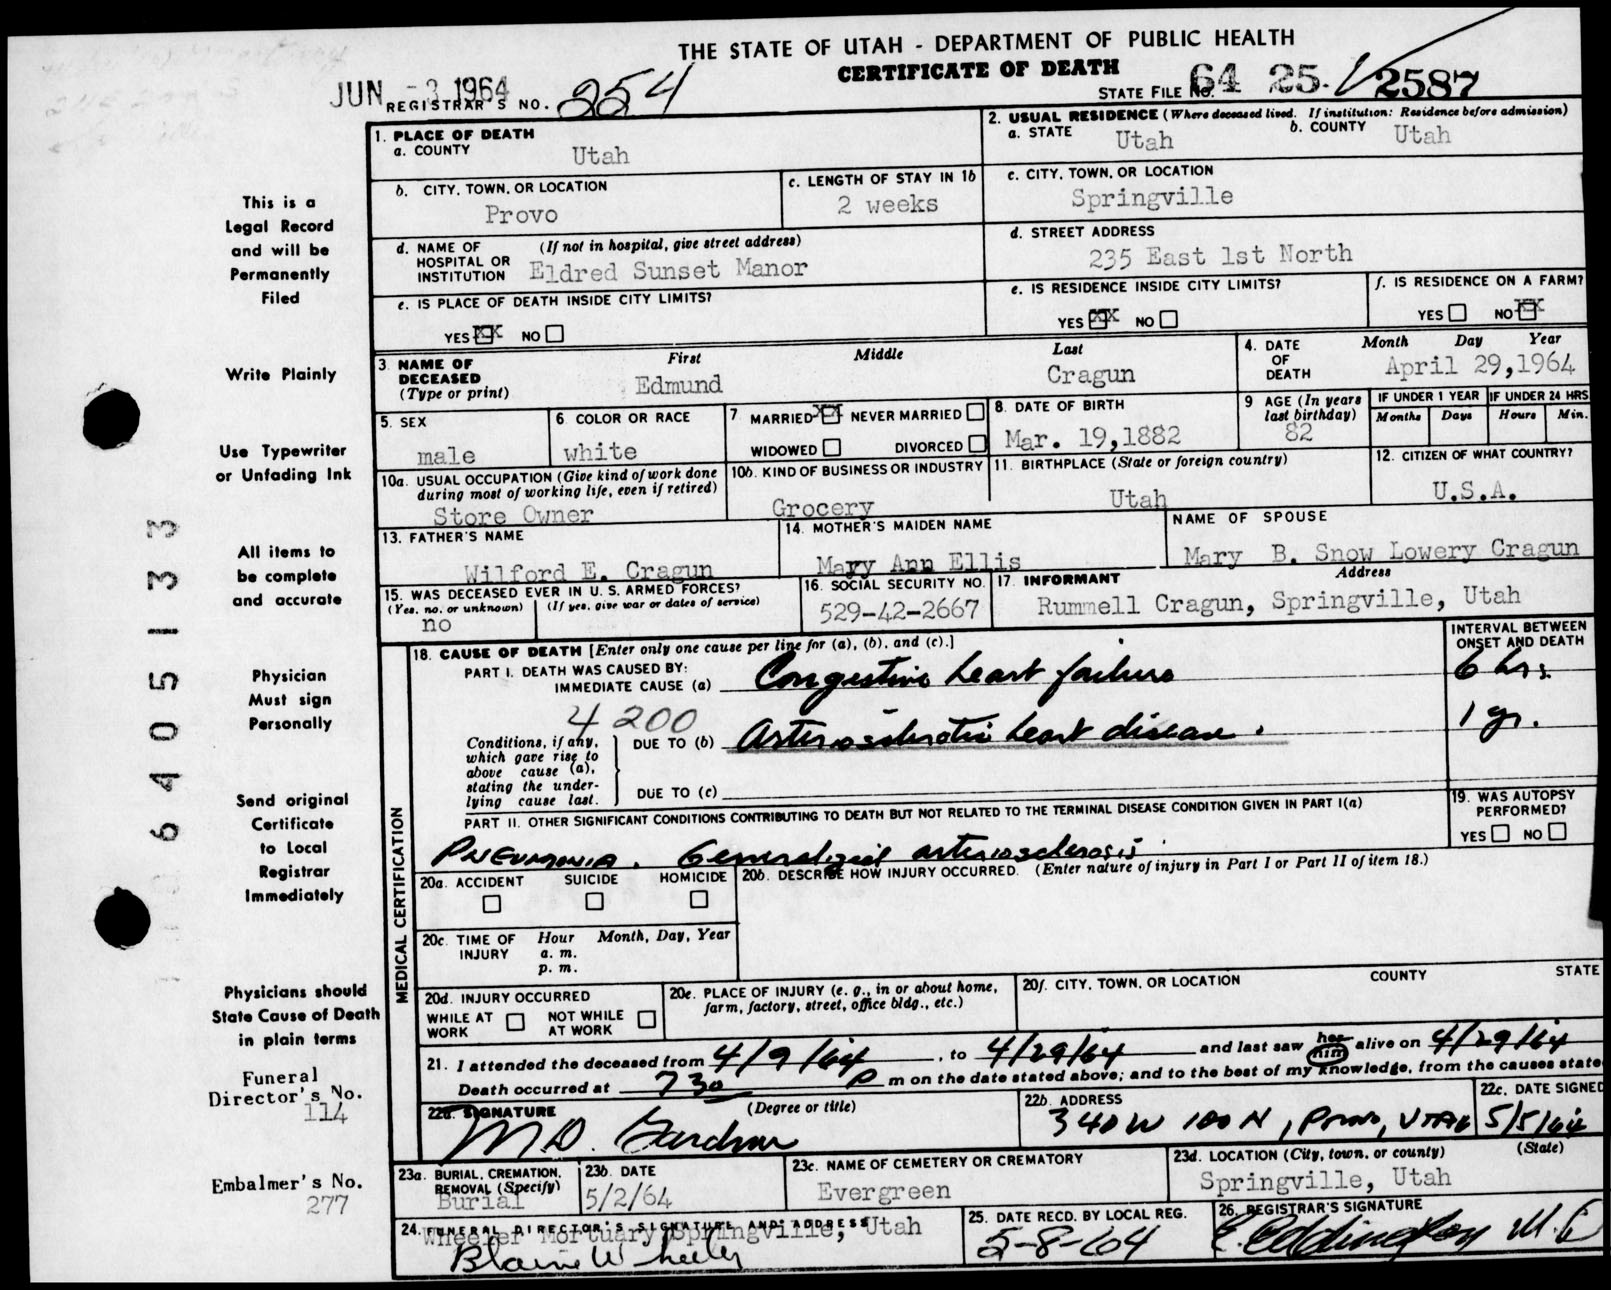 THE STATE OF UTAH - DEPARTMENT OF PUBLIC HEALTH
CERTIFICATE OF DEATH
JUN -3 1964
REGISTRAR'S NO. 254
STATE FILE NO. 64 25- 2587
1. PLACE OF DEATH
a. COUNTY
Utah
2. USUAL RESIDENCE (Where deceased lived. If institution: Residence before admission)
a. STATE Utah b. COUNTY Utah
b. CITY, TOWN, OR LOCATION
Provo
c. LENGTH OF STAY IN 1b
2 weeks
c. CITY, TOWN, OR LOCATION
Springville
d. NAME OF HOSPITAL OR INSTITUTION (If not in hospital, give street address)
Eldred Sunset Manor
d. STREET ADDRESS
235 East 1st North
e. IS PLACE OF DEATH INSIDE CITY LIMITS?
YES XX NO
e. IS RESIDENCE INSIDE CITY LIMITS?
YES XX NO
f. IS RESIDENCE ON A FARM?
YES NO XX
3. NAME OF DECEASED (Type or print)
First Middle Last
Edmund Cragun
4. DATE OF DEATH Month Day Year
April 29,1964
5. SEX
male
6 COLOR OR RACE
white
7 MARRIED XX NEVER MARRIED
WIDOWED DIVORCED
8. DATE OF BIRTH
Mar. 19,1882
9 AGE (In years last birthday)
82
IF UNDER 1 YEAR
Months Days
IF UNDER 24 HRS
Hours Min.
10a. USUAL OCCUPATION (Give kind of work done during most of working life, even if retired)
Store Owner
10b. KIND OF BUSINESS OR INDUSTRY
Grocery
11. BIRTHPLACE (State or foreign country)
Utah
12. CITIZEN OF WHAT COUNTRY?
U.S.A.
13. FATHER'S NAME
Wilford E. Cragun
14. MOTHER'S MAIDEN NAME
Mary Ann Ellis
NAME OF SPOUSE
Mary B. Snow Lowery Cragun
15. WAS DECEASED EVER IN U. S. ARMED FORCES?
(Yes, no, or unknown) (If yes, give war or dates of service)
no
16. SOCIAL SECURITY NO.
529-42-2667
17. INFORMANT Address
Rummell Cragun, Springville, Utah
18. CAUSE OF DEATH [Enter only one cause per line for (a), (b), and (c).]
INTERVAL BETWEEN ONSET AND DEATH
PART I. DEATH WAS CAUSED BY:
IMMEDIATE CAUSE (a) Congestive heart failure 6 hrs.
4200
Conditions, if any, which gave rise to above cause (a), stating the underlying cause last.
DUE TO (b) Arteriosclerotic heart disease. 1 yr.
DUE TO (c)
PART II. OTHER SIGNIFICANT CONDITIONS CONTRIBUTING TO DEATH BUT NOT RELATED TO THE TERMINAL DISEASE CONDITION GIVEN IN PART I(a)
Pneumonia. Generalized arteriosclerosis
19. WAS AUTOPSY PERFORMED?
YES NO
MEDICAL CERTIFICATION
20a. ACCIDENT SUICIDE HOMICIDE
20b. DESCRIBE HOW INJURY OCCURRED. (Enter nature of injury in Part I or Part II of item 18.)
20c. TIME OF INJURY Hour Month, Day, Year
a. m.
p. m.
20d. INJURY OCCURRED
WHILE AT WORK NOT WHILE AT WORK
20e. PLACE OF INJURY (e. g., in or about home, farm, factory, street, office bldg., etc.)
20f. CITY, TOWN, OR LOCATION COUNTY STATE
21. I attended the deceased from 4/9/64, to 4/29/64 and last saw her him alive on 4/29/64
Death occurred at 730 P m on the date stated above; and to the best of my knowledge, from the causes state
22a. SIGNATURE (Degree or title)
M D. Gardner
22b. ADDRESS
340 W 100 N, Provo, Utah
22c. DATE SIGNED
5/5/64
23a. BURIAL, CREMATION, REMOVAL (Specify)
Burial
23b. DATE
5/2/64
23c. NAME OF CEMETERY OR CREMATORY
Evergreen
23d. LOCATION (City, town, or county) (State)
Springville, Utah
24. FUNERAL DIRECTOR'S SIGNATURE AND ADDRESS
Wheeler Mortuary Springville, Utah
Blaine Wheeler
25. DATE RECD. BY LOCAL REG.
5-8-64
26. REGISTRAR'S SIGNATURE
This is a
Legal Record
and will be
Permanently
Filed
Write Plainly
Use Typewriter
or Unfading Ink
All items to
be complete
and accurate
Physician
Must sign
Personally
Send original
Certificate
to Local
Registrar
Immediately
Physicians should
State Cause of Death
in plain terms
Funeral
Director's No.
114
Embalmer's No.
277
6405133